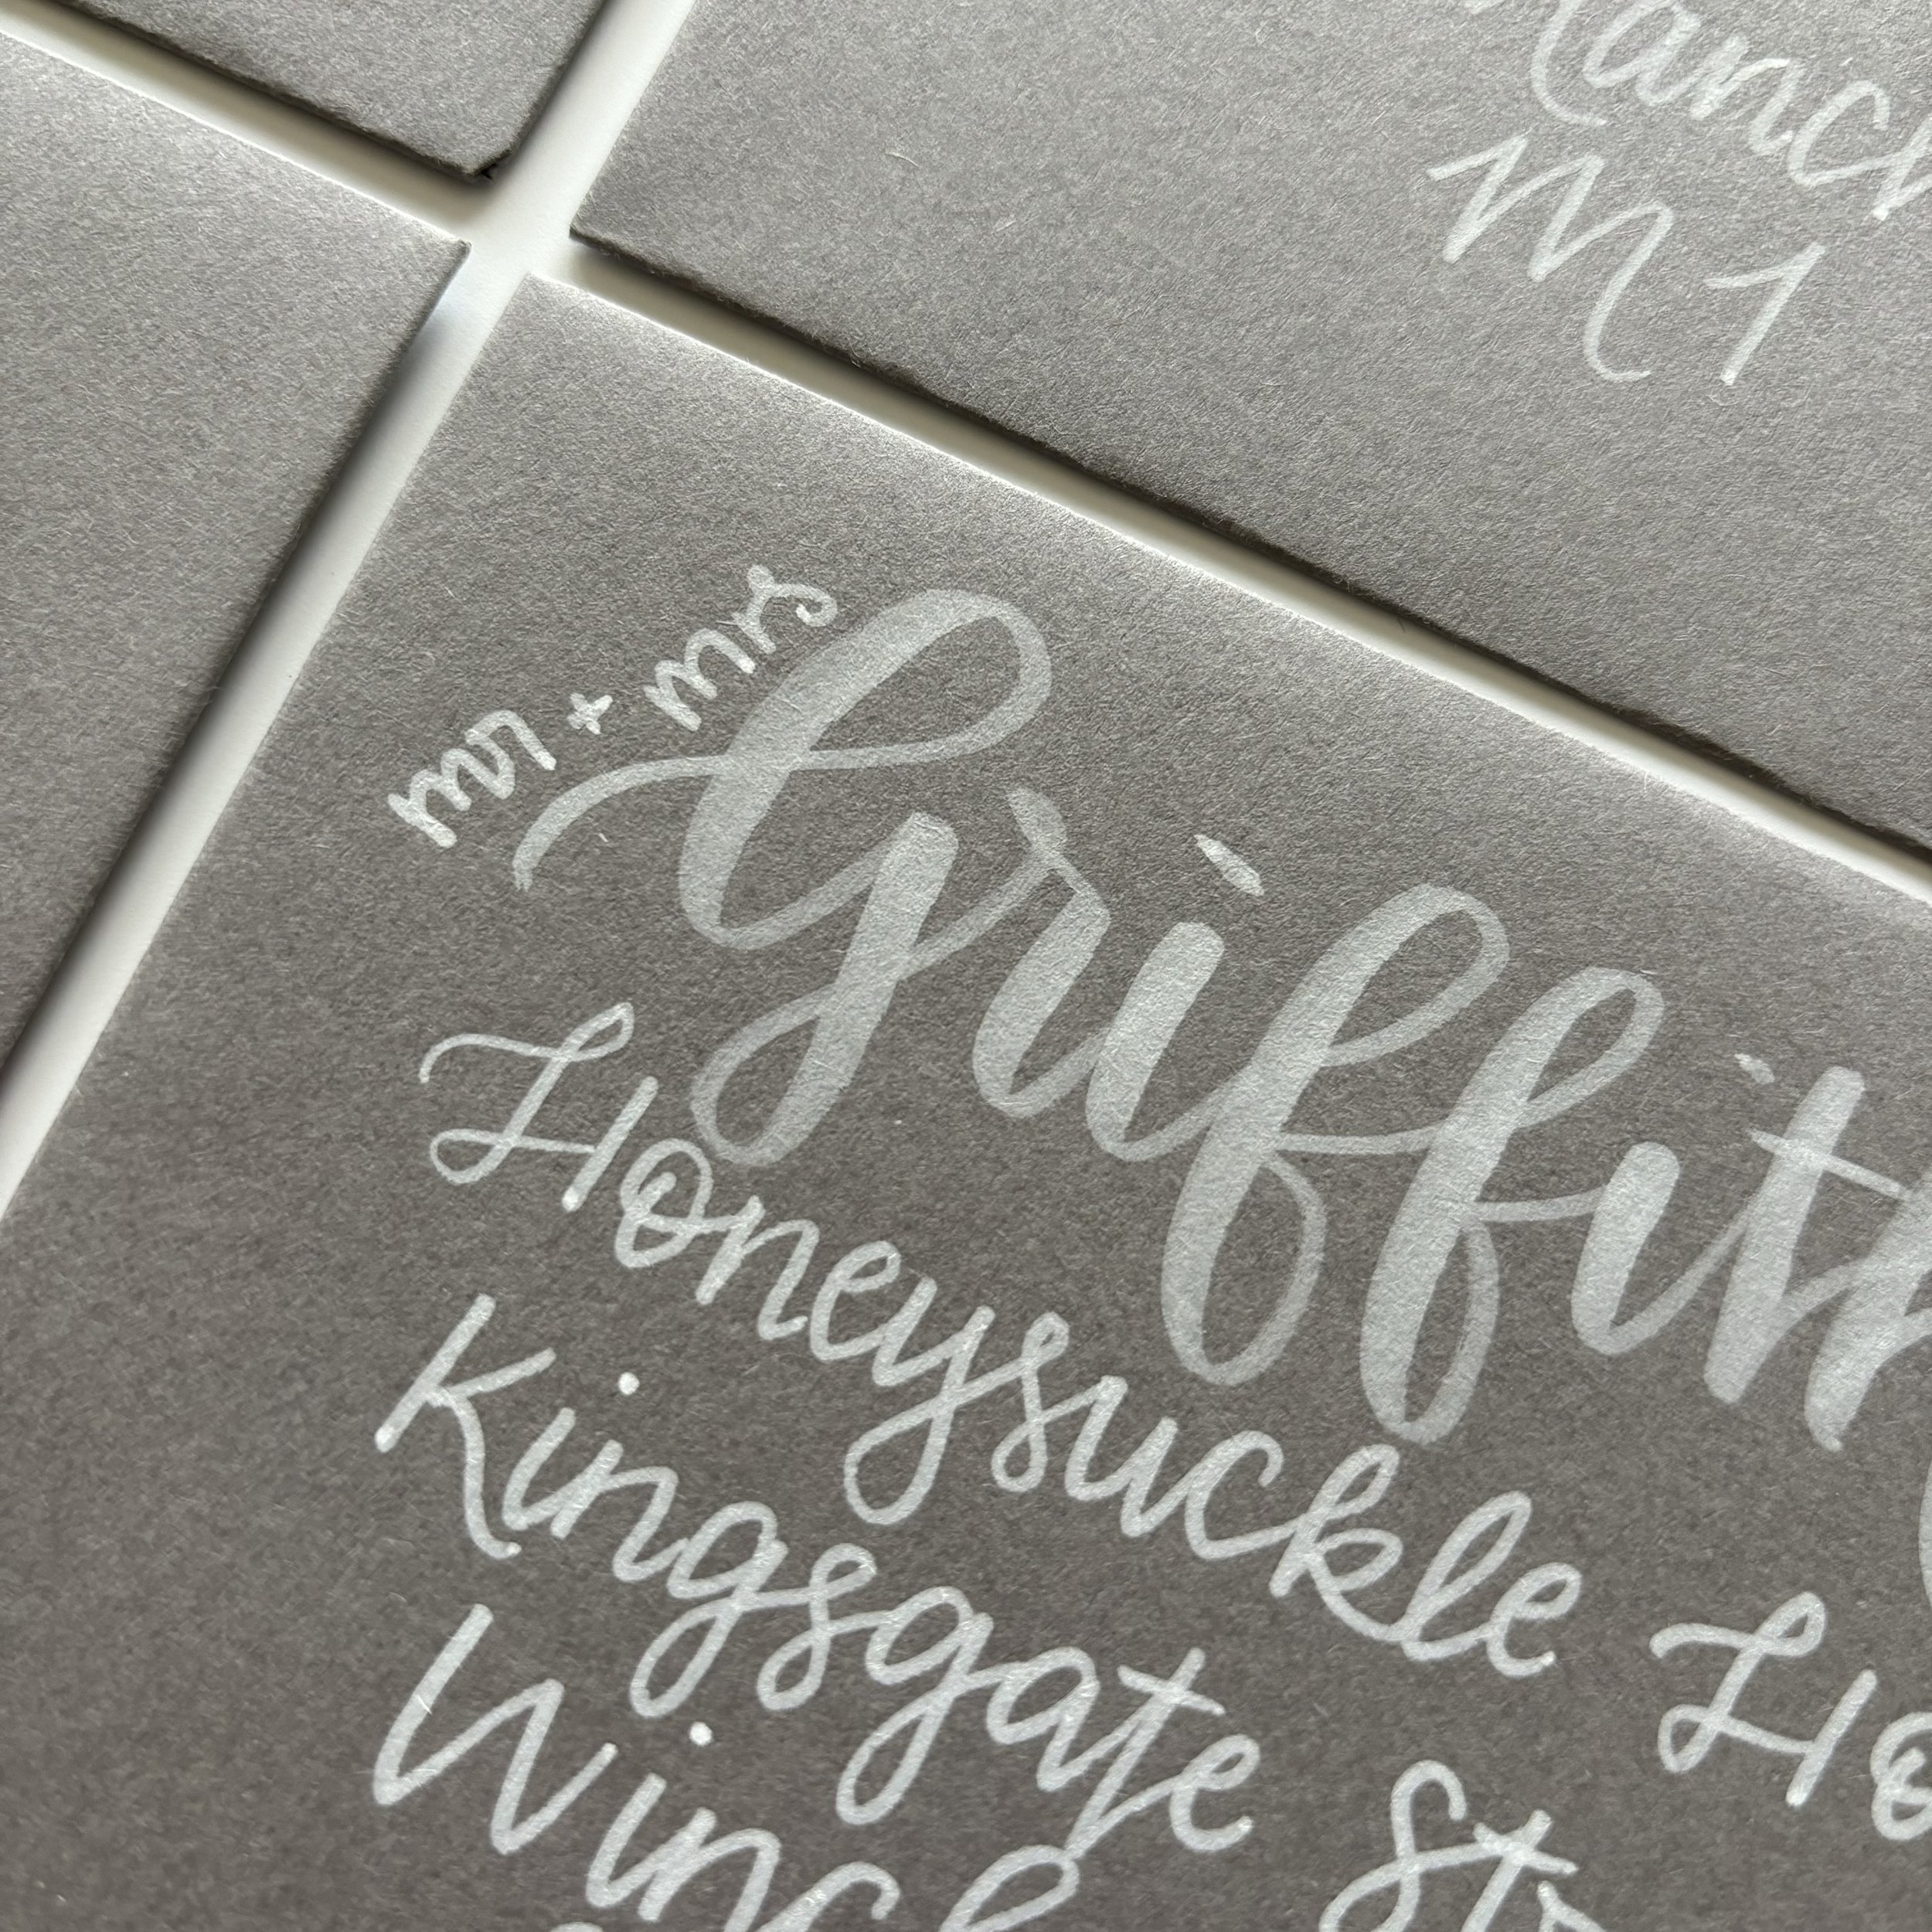 M1
mr + mrs
Griffith
Honeysuckle Ho
Kingsgate Str
Winch